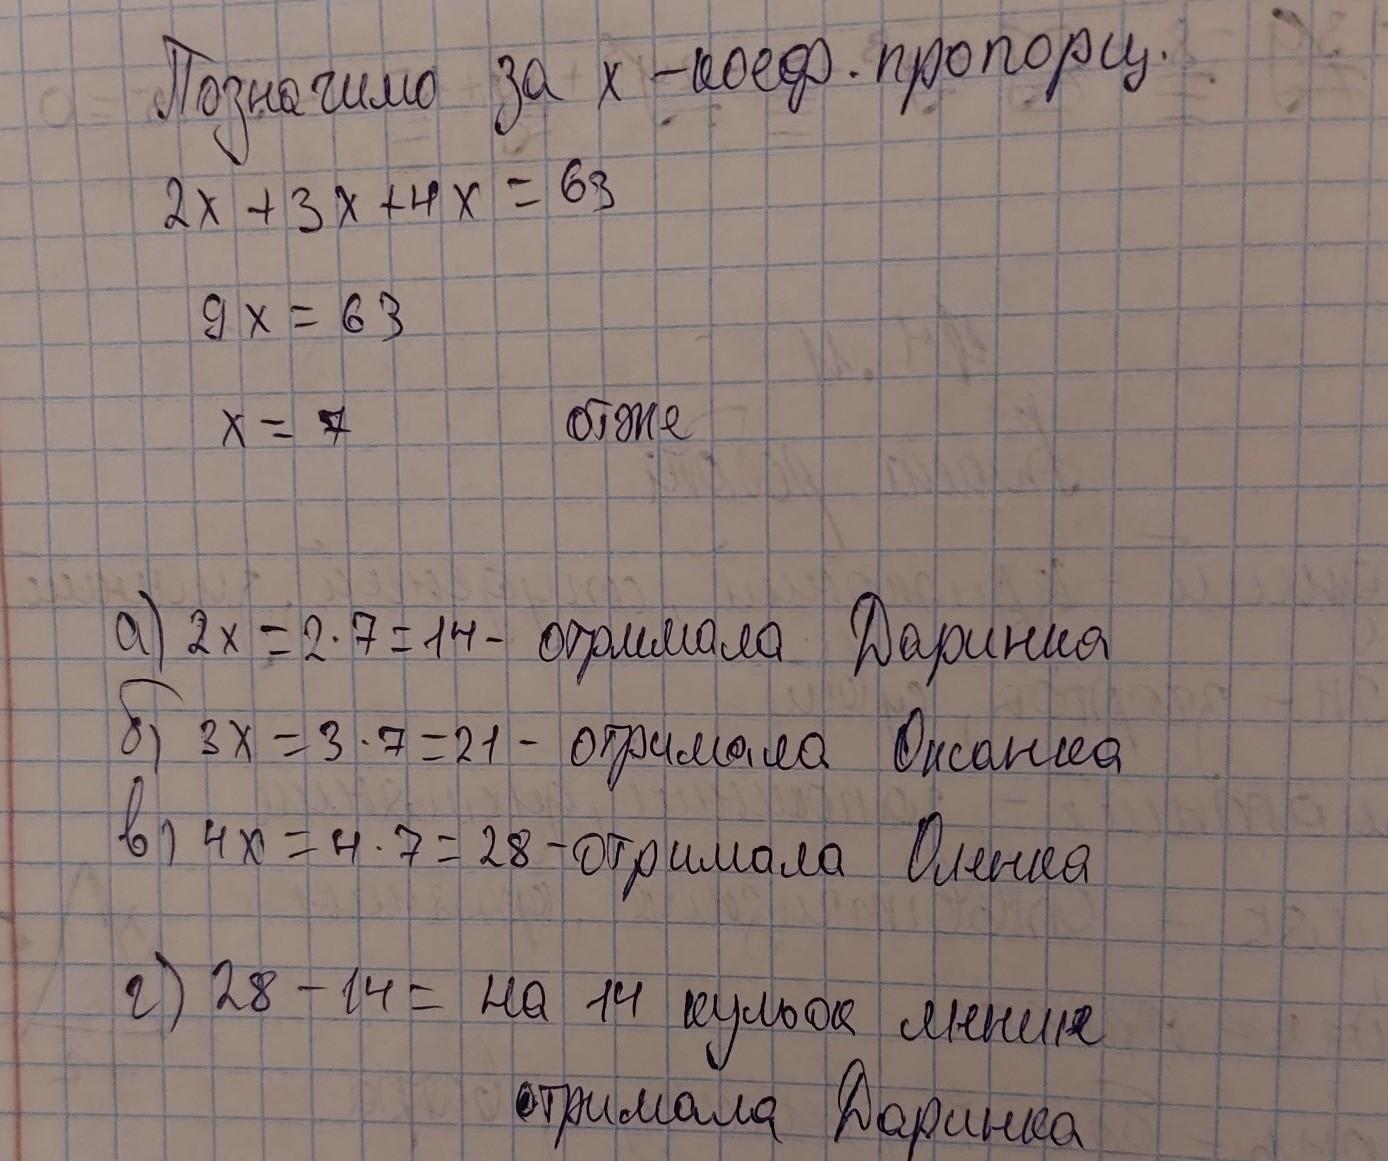 Позначимо за x - коеф. пропорц.
2x + 3x + 4x = 63
9x = 63
x = 7 отже
а) 2x = 2·7 = 14 - отримала Даринка
б) 3x = 3·7 = 21 - отримала Оксанка
в) 4x = 4·7 = 28 - отримала Оленка
г) 28 - 14 = на 14 кульок менше
отримала Даринка